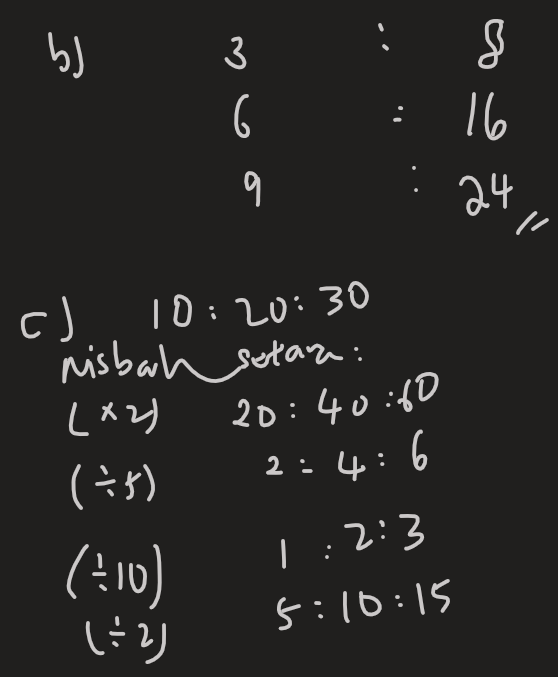 b) 3 : 8
6 : 16
9 : 24 //
c) 10 : 20 : 30
nisbah setara :
(×2) 20 : 40 : 60
(÷5) 2 : 4 : 6
(÷10) 1 : 2 : 3
(÷2) 5 : 10 : 15